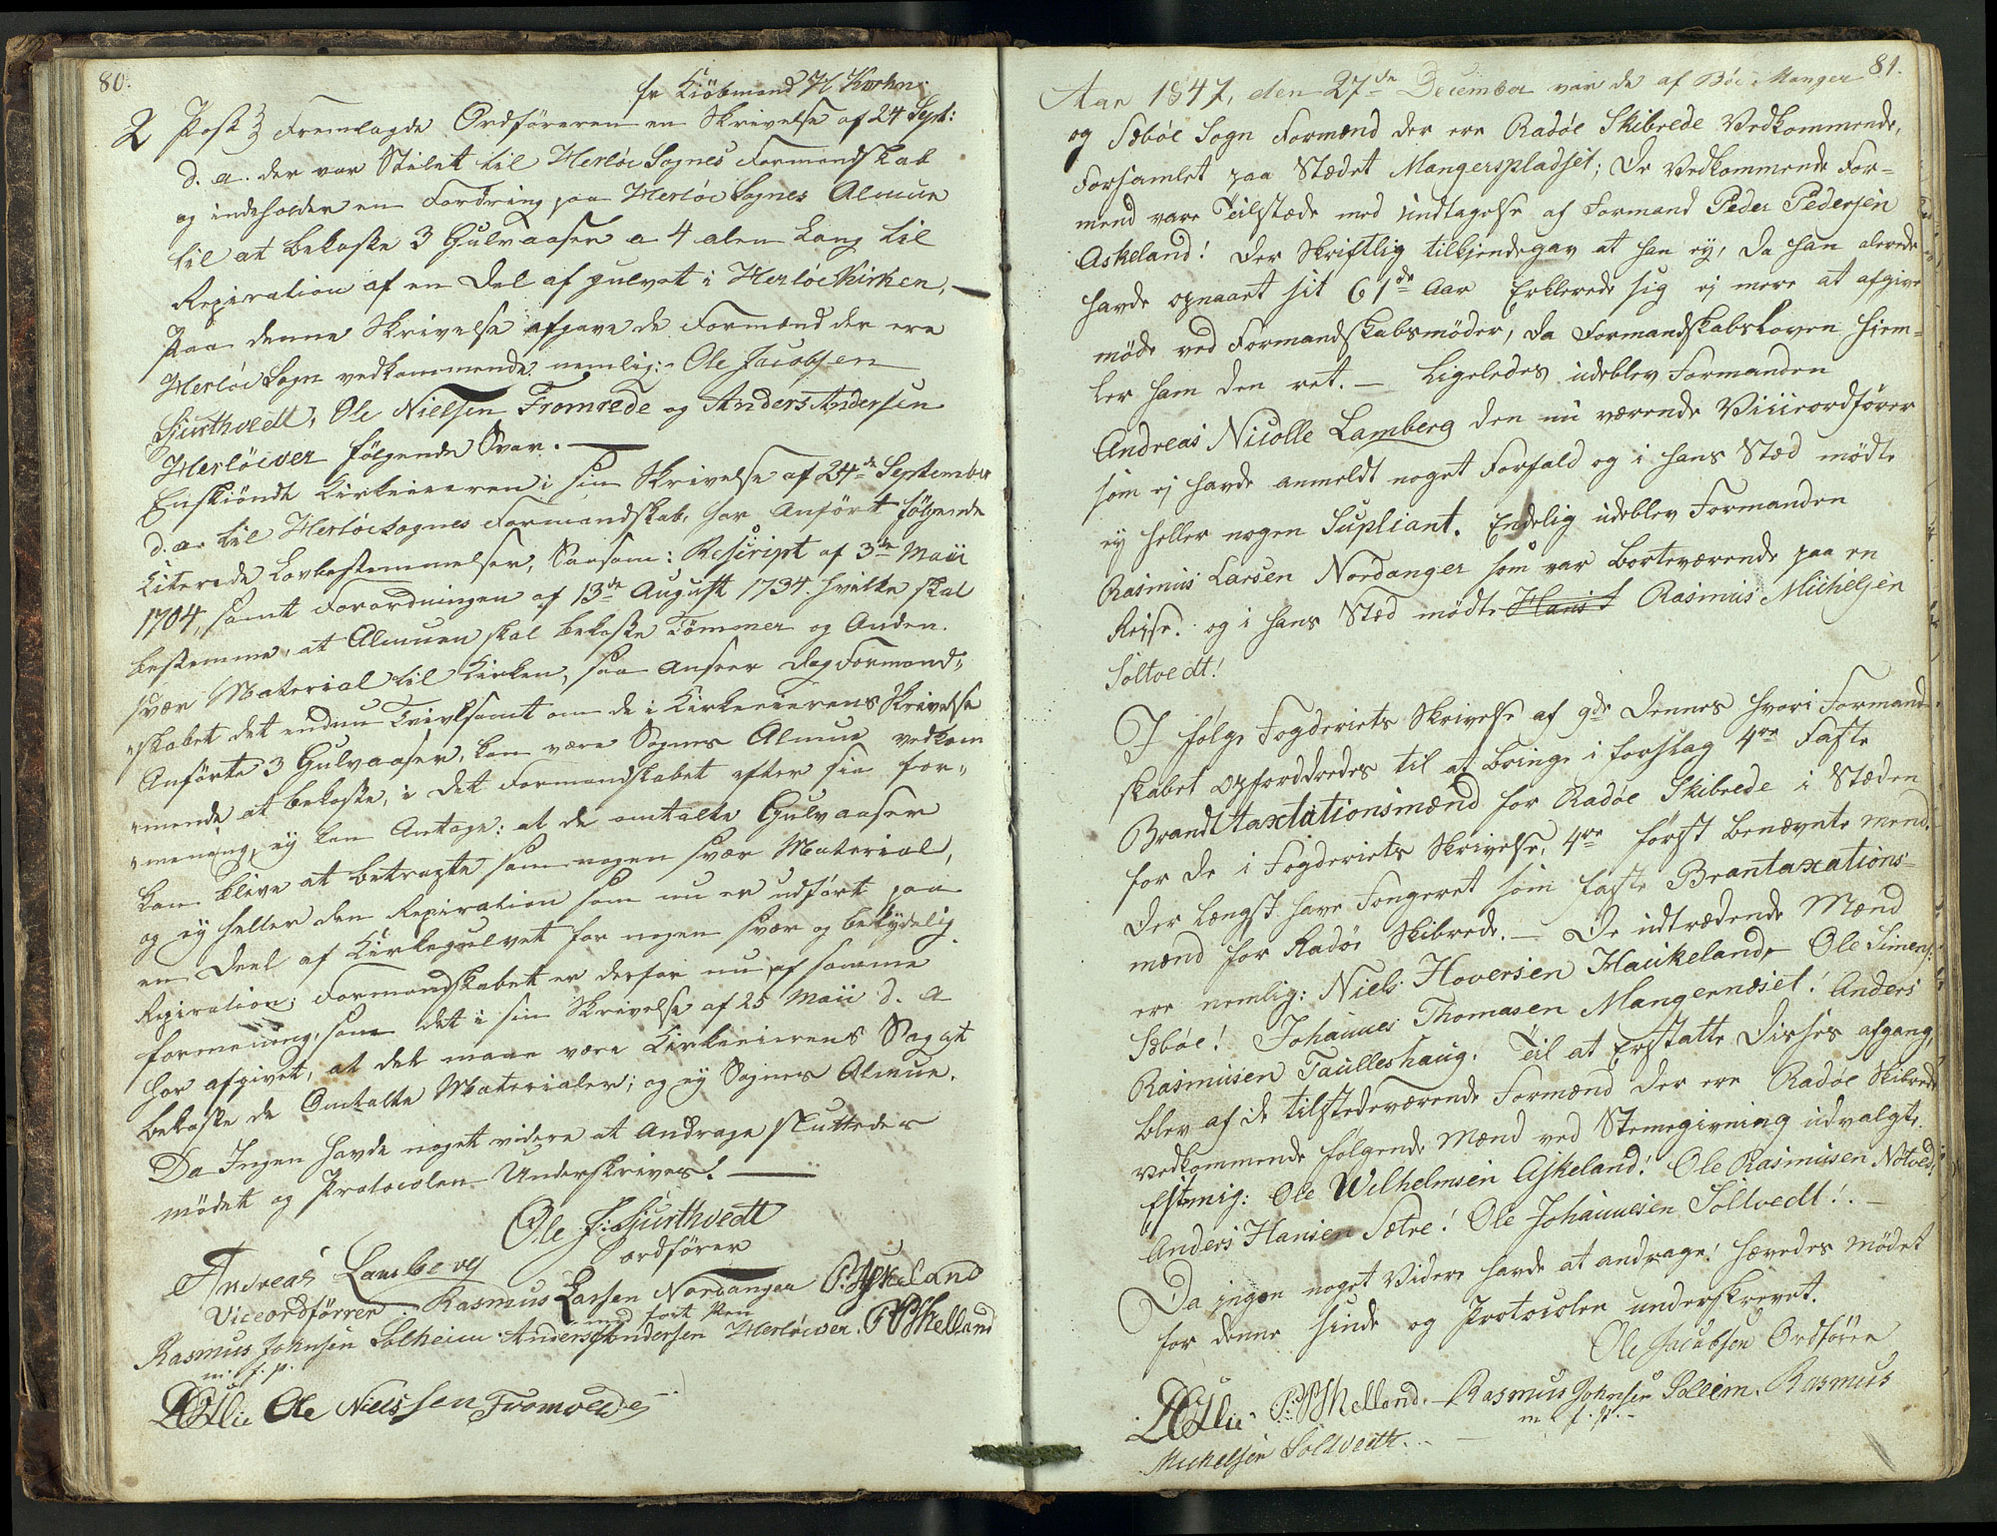 80.
fr Kiöbmand H. Krohn
2 Post Fremlagde Ordföreren en Skrivelse af 24 Sept:
d. a. der var Stilet til Herlöe Sognes Formandskab
og indeholder en Fordring paa Herlöe Sognes Almue
til at bekoste 3 Gulvaaser a 4 alen Lang til
Repiration af en Del af gulvet i Herlöe Kirken, —
Paa denne Skrivelse afgave de Formænd der ere
Herlöe Sogn vedkommende nemlig: Ole Jacobsen
Sjurthvedt, Ole Nielsen Fromrede og Anders Andersen
Herlöever følgende Svar. —
Enskiöndt Kirkeieeren i sin Skrivelse af 24de September
d. a. til Herlöe Sognes Formandskab, har Anført følgende
Citerede Lovbestemmelser, Saasom: Rescript af 3de Maii
1704, samt Forordningen af 13de August 1734. hvilke skal
bestemme, at Almuen skal bekoste Tömmer og Anden
svær Material til Kirken, saa anseer dog Formand„
„skabet det endnu Tvivlsomt om de i Kirkeieerens Skrivelse
Anførte 3 Gulvaaser, kan være Sognes Almue vedkom
„mende at bekoste, i det Formandskabet efter sin for„
„mening, ey kan Antage: at de omtalte Gulvaaser
kan blive at betragte som nogen svær Material,
og ey heller den Repiration som nu er udført paa
en Deel af Kirkegulvet for nogen svær og betydelig
Repiration; Formandskabet er derfor nu af samme
formening, som det i sin Skrivelse af 25 Maii d. a
har afgivet, at det maae være Kirkeieerens Sag at
bekoste de Omtalte Materialer; og ey Sognes Almue.
Da Ingen havde noget videre at Andrage sluttedes
mödet og Protocolen Underskrives. —
Ole J: Sjurthvedt
ordfører
Andreas Lamberg
Viceordförrer Rasmus Larsen Nordanger P. Askeland
med fört Pen
Rasmus Johnsen Solheim Anders Andersen Herlöever. P P Helland
m. f. p.
Ole Nielssen Fromrede
81.
Aar 1847, den 27de December var de af Böe Manger
og Sæböe Sogn Formænd der ere Radöe Skibrede Vedkommende,
Forsamlet paa Stædet Mangerspladset; De Vedkommende For=
mend vare Tilstæde med Undtagelse af Formand Peder Pedersen
Askeland! der Skriftlig tilkjendegav at han ey, da han alerede
havde opnaaet sit 61de Aar Erklerede sig ej mere at afgive
møde ved Formandskabsmöder, da Formandskabsloven Hiem=
ler ham den ret. — Ligeledes udeblev Formanden
Andreas Nicolle Lamberg den nu værende Viiceordförer
som ej havde anmeldt noget Forfald og i hans Stæd mödte
ey heller nogen Supliant. Endelig udeblev Formanden
Rasmus Larsen Nordanger som var borteværende paa en
Reise. og i hans Stæd mödte Hans Rasmus Michelsen
Soltvedt!
I følge Fogderiets Skrivelse af 9de Dennes hvori Formand
skabet opforddredes til at bringe i forslag 4re Faste
Brandttaxtationsmænd for Radöe Skibrede i Stæden
for de i Fogderiets Skrivelse, 4re først benævnte mend.
Der længst have Fongeret som faste Brantaxations=
mænd for Radöe Skibrede. — De udtrædende Mænd
ere nemlig: Niels Hoversen Haukeland, Ole Simens:
Sæböe! Johannes Thomasen Mangernæset! Anders
Rasmusen Taulleshaug. Til at Erstatte Disses afgang,
blev af de tilstedeværende Formænd der ere Radöe Skibrede
vedkommende følgende Mænd ved Stemegivning udvalgt,
Estemig: Ole Wilhelmsen Askeland! Ole Rasmusen Notved!
Anders Hansen Sætre! Ole Johannesen Soltvedt! —
Da ingen noget Videre havde at andrage! hævedes mödet
for denne sinde og Protocolen underskrevet.
Ole Jacobsen Ordförer
P: P Helland. Rasmus Johnsen Sollem. Rasmus
m. f. p. —
Mickelsen Soltvedt. —